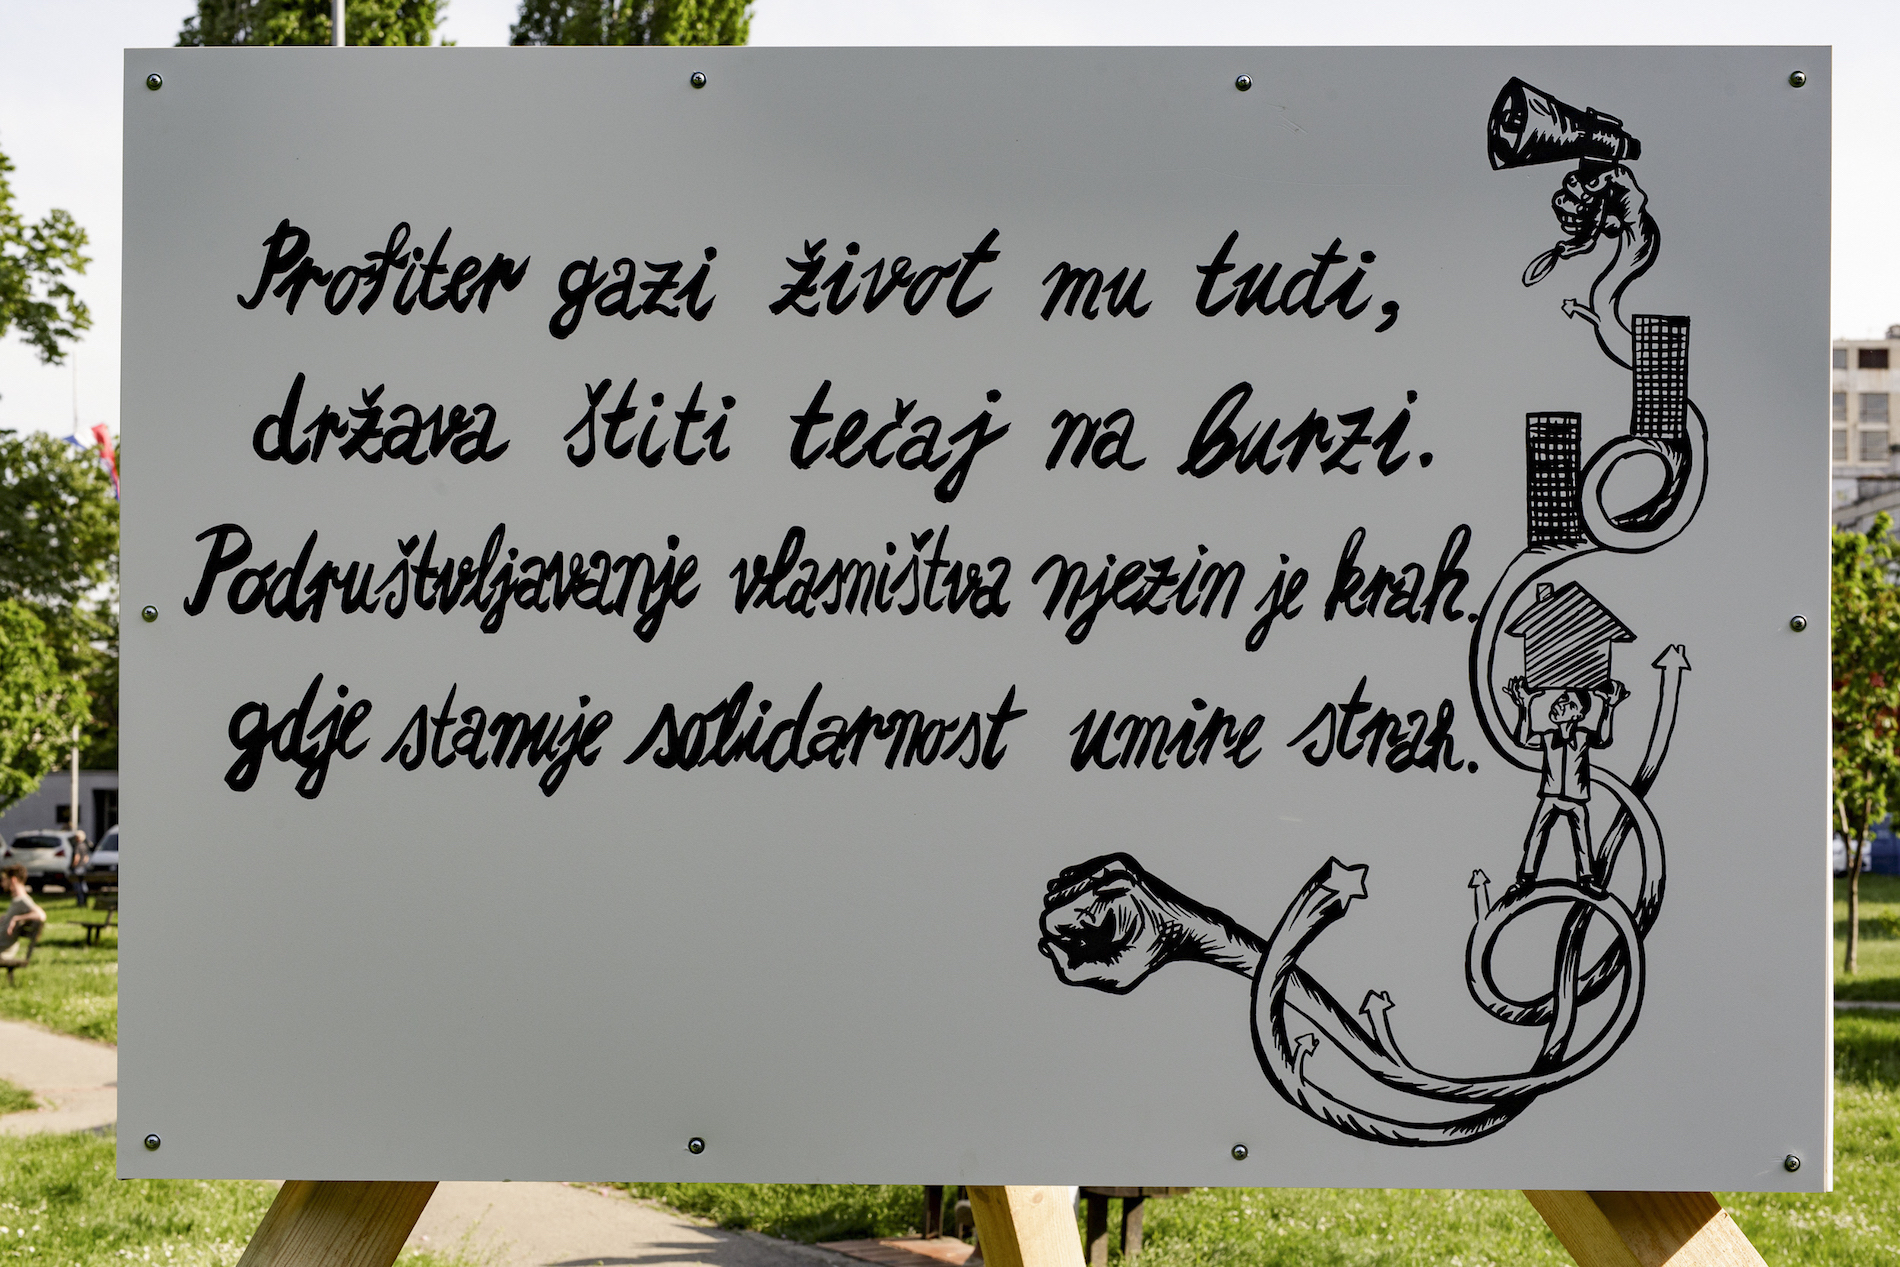 Profiter gazi život mu tuđi,
država štiti tečaj na burzi.
Podruštvljavanje vlasništva njezin je krah.
gdje stanuje solidarnost umire strah.